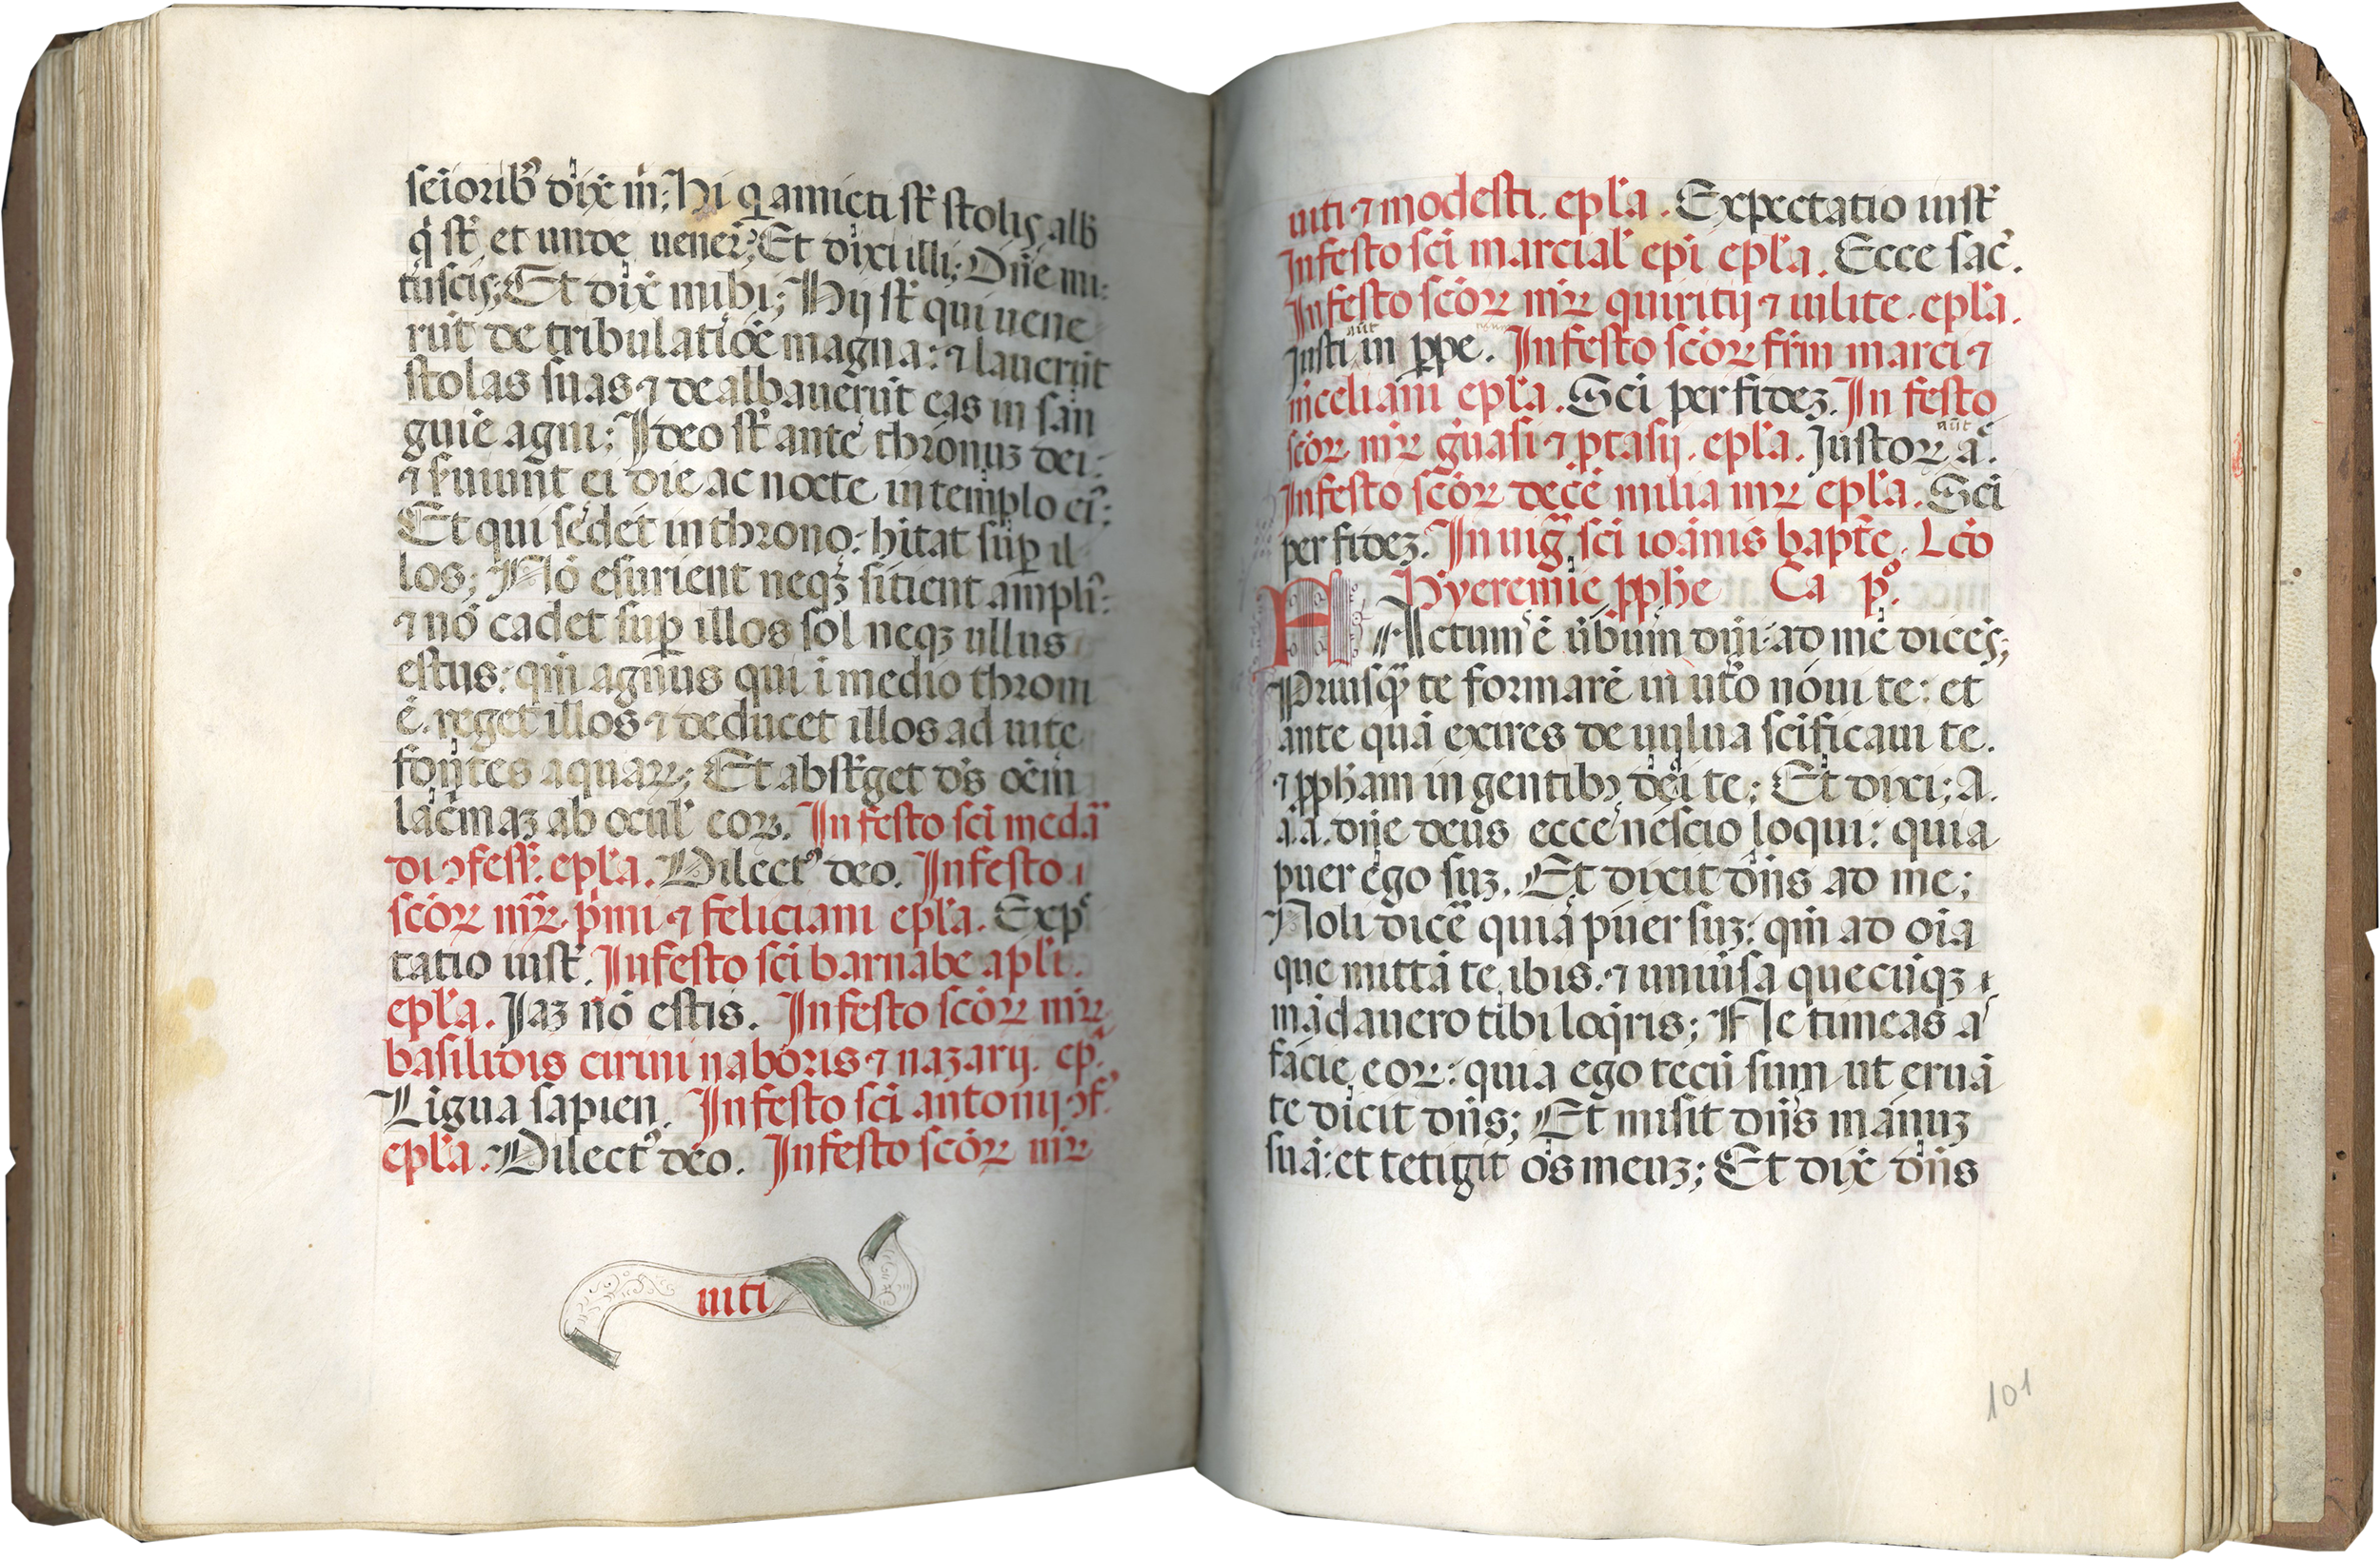 seiorib' dix̄ m̄; Hi q amicti st̄ stolis alb
q̇ st̄ et unde uener̄? Et dixi illi; Dn̄e mi:
tu scis; Et dix̄ mihi; Hij st̄ qui uene
rūt de tribulatiōe magna: ⁊ lauerūt
stolas suas ⁊ dealbauerūt eas in sān
guiē agni; Ideo st̄ ante thronuꝫ dei:
⁊ ſ̄uiunt ei die ac nocte in templo ei':
Et qui sedet in throno: hītat sup̄ il
los; Nō esurient neqꝫ sitient ampli':
⁊ nō cadet sup̄ illos sol neqꝫ ullus
estus: qm̄ agnus qui ī medio throni
ē. reget illos ⁊ deducet illos ad uite
fontes aquaꝝ; Et abst̄get ds̄ oēm
lac̄maꝫ ab ocul' eoꝝ. In festo sci medā
di ꝯfess̄. epl̄a. Dilect' deo. In festo
scōꝝ mr̄ꝝ pⁱmi ⁊ feliciani epl̄a. Exp
tatio iust̄. In festo sci barnabe apl̄i.
epl̄a. Jaꝫ nō estis. In festo scōꝝ mr̄ꝝ
basilidis cirini naboris ⁊ nazarij. ep̄.
Ligua sapien. In festo sci antonij ꝯf.
epl̄a. Dilect' deo. In festo scōꝝ mr̄ꝝ
uiti
uiti ⁊ modesti. epl̄a. Expectatio iust̄
In festo sci marcial' ep̄i epl̄a. Ecce sac̄.
In festo scōꝝ mr̄ꝝ quiritij ⁊ iulite. epl̄a.
Justi aūt in ꝑpe. In festo scōꝝ fr̄m marci ⁊
m̄celiani epl̄a. Sci per fideꝫ. In festo
scōꝝ mr̄ꝝ ġuasi ⁊ ꝓtasij. epl̄a. Justoꝝ aūt a.
In festo scōꝝ decē milia mr̄ꝝ epl̄a. Sci
per fideꝫ. In uiḡ sci ioānis bapt̄e. Lc̄o
Hyeremie ꝓph̄e Ca pº.
FActum ē ūbum dn̄i ad me dicēs;
Priusq̄ te formarē in ut̄o noui te: et
ante quā exires de uulua sc̄ificaui te.
⁊ ꝓph̄am in gentibꝫ dedi te; Et dixi; A.
a. a. dn̄e deus ecce nescio loqui: quia
puer ego suꝫ. Et dixit dn̄s ad me;
Noli dicē quia puer suꝫ: qm̄ ad oīa
que mittā te ibis. ⁊ uniūsa quecūqꝫ
mādauero tibi loq̄ris; Ne timeas a
facie eoꝝ: quia ego tecū sum ut eruā
te dicit dn̄s; Et misit dn̄s manuꝫ
suā: et tetigit os meuꝫ; Et dix̄ dn̄s
101